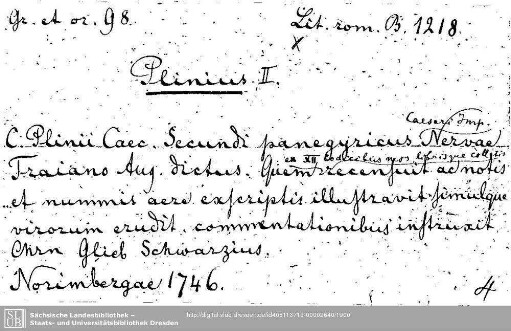 Gr. et or. 98.
Lit. rom. B. 1218.
X
Plinius II.
Caesari Imp.
C. Plinii Caec. Secundi panegyricus Nervae
Traiano Aug. dictus. Quem recensuit ac notis
ex XII codicibus mss. librisque collatis
et nummis aere exscriptis illustravit simulque
virorum erudit. commentationibus instruxit
Chrn Glieb Schwarzius.
Norimbergae 1746.
4
SLUB
Sächsische Landesbibliothek –
Staats- und Universitätsbibliothek Dresden